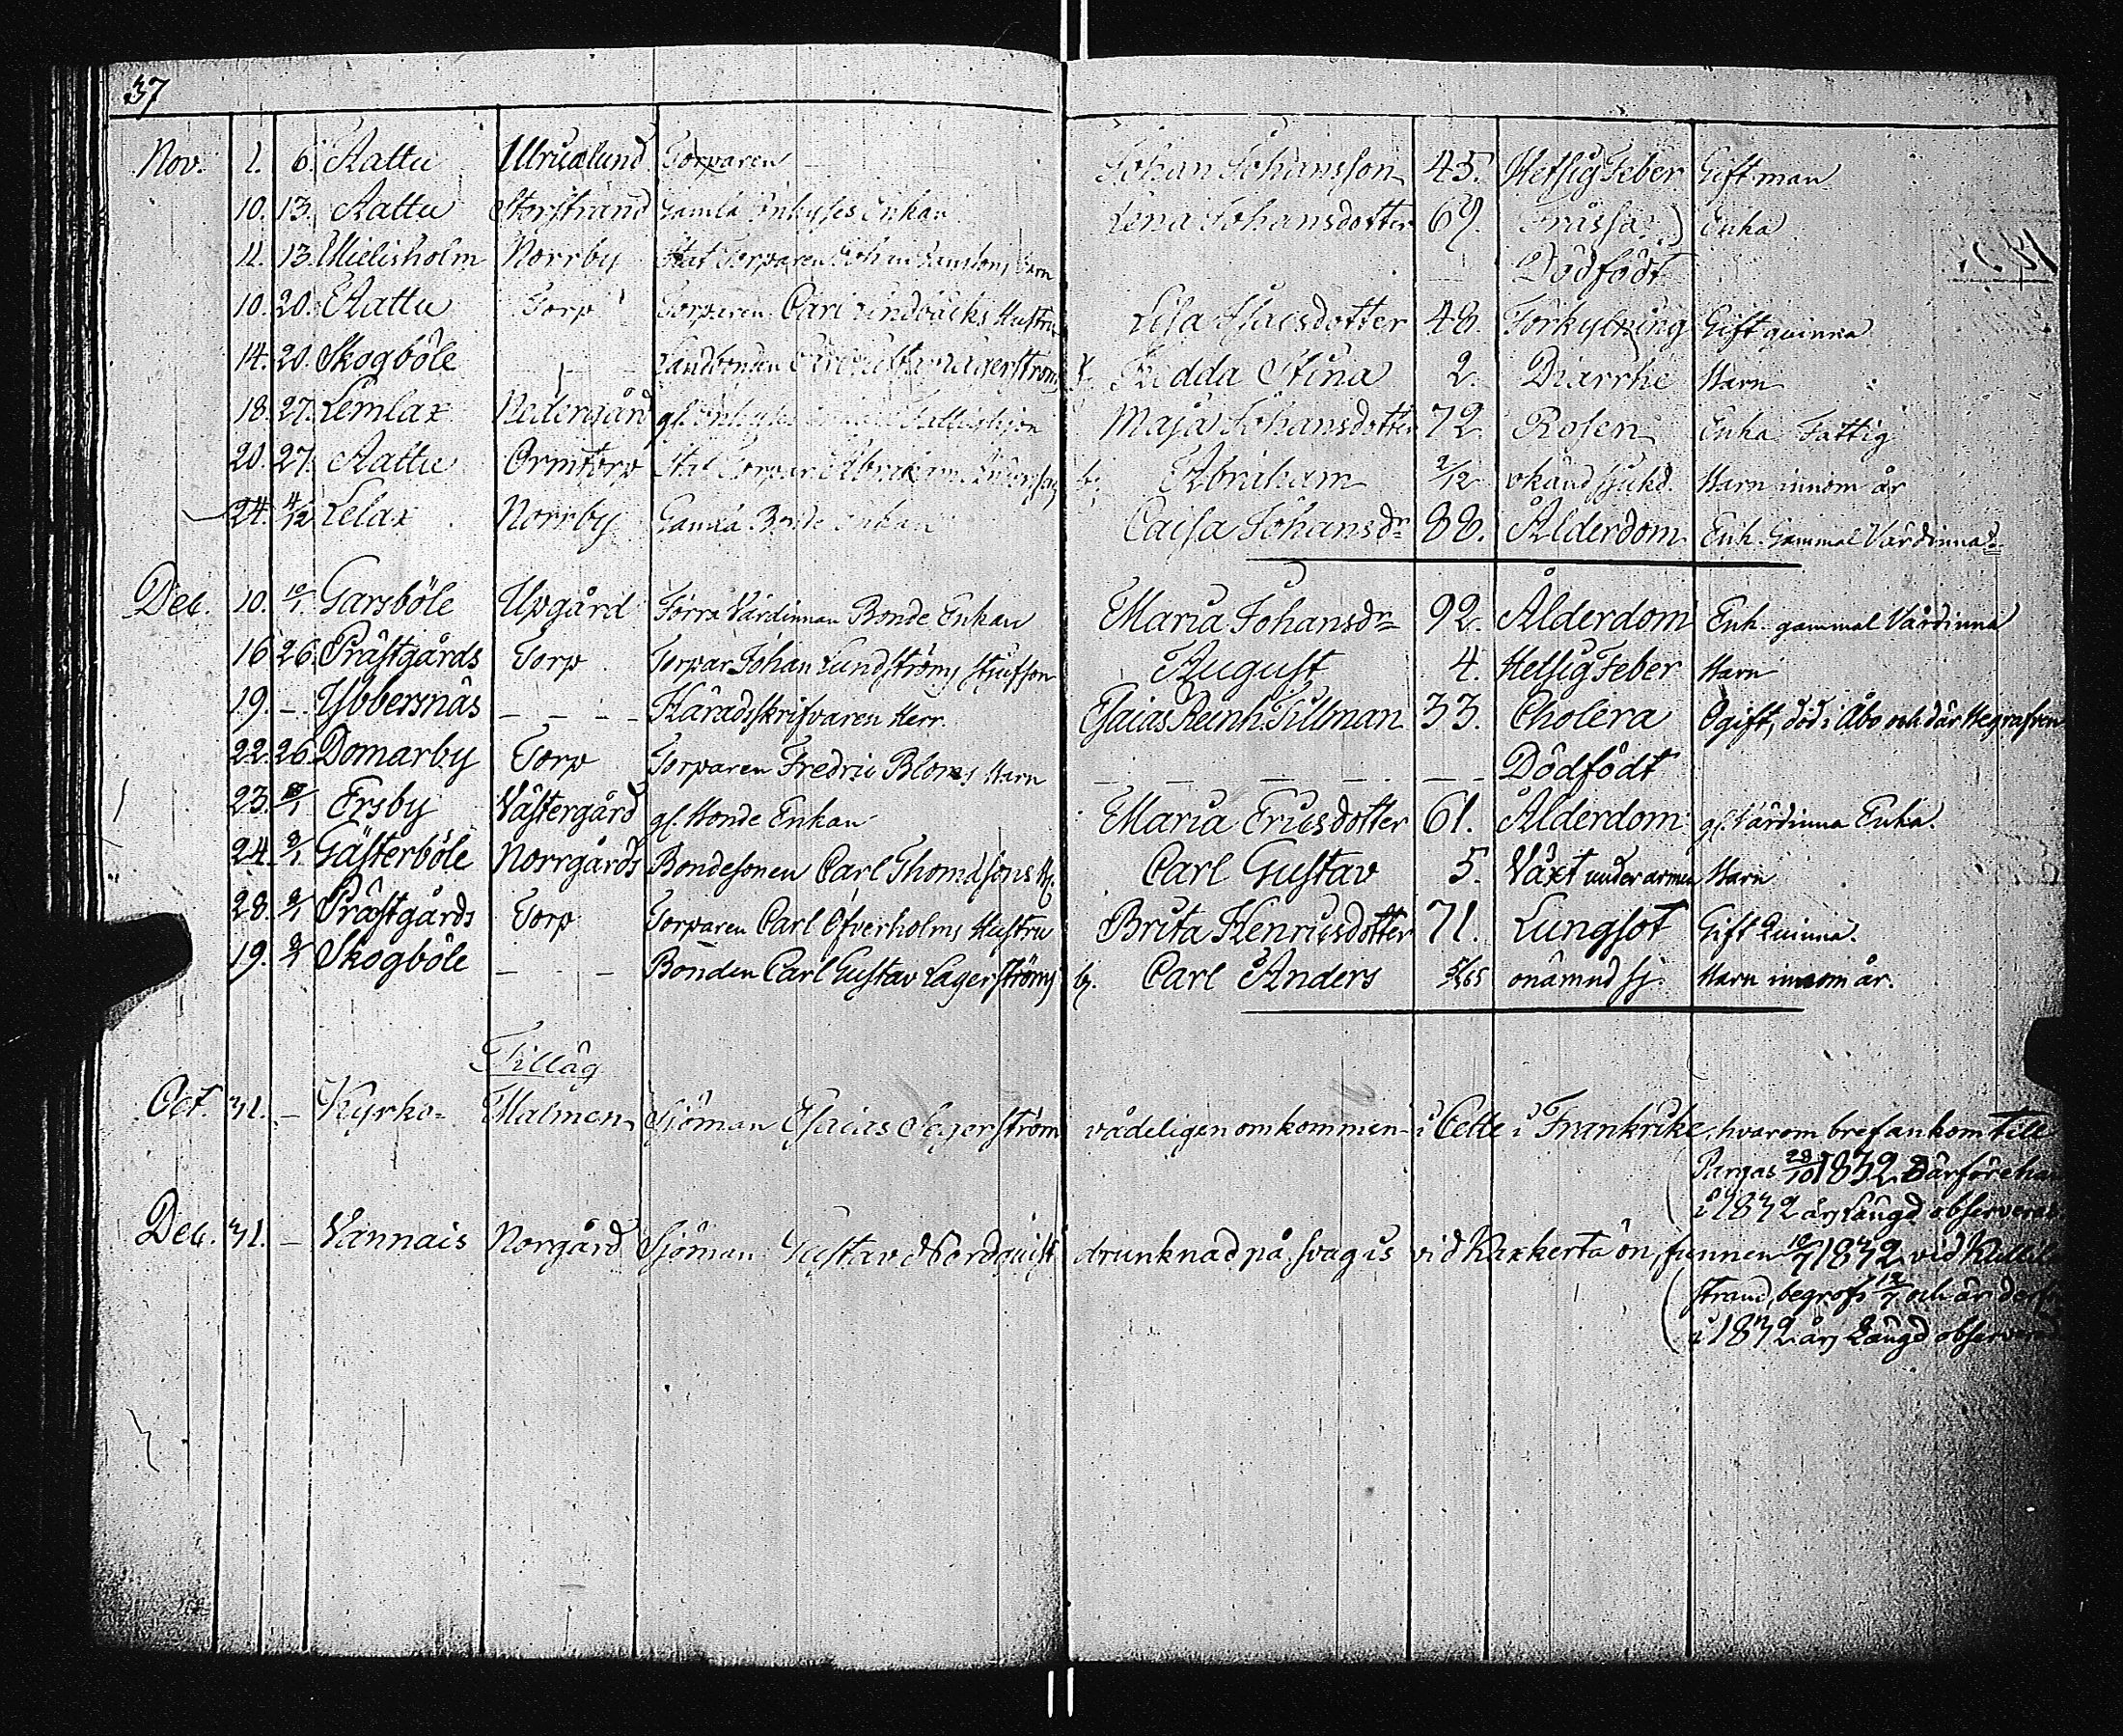 37
Nov. 1. 6. Aattu Ulrucalund Torparen Johan Johansson 45. Hetsig Feber Gift man
10. 13. Aattu Storstrand Gamla Inhyses Enkan Lena Johansdotter 69. Frässa Enka
11. 13. Mielisholm Norrby Stat Torparen Johan Barn Dödfödt
10. 20. Aattu Torp Torparen Carl Lindbäcks Hustru Lisa Isacsdotter 48. Förkylning Gift qvinna
14. 20. Skogböle — Landbonden Lagerströms Hedda Stina 2. Diarrhé Barn
18. 27. Lemlax Nedergård gl. Inhyses Maja Johansdotter 72. Rosen Enka Fattig
20. 27. Aattu Ormtorp Stat Torpar Abraham b. Abraham 2/12 okänd sjukd. Barn innom år
24. 4/12 Lelax Norrby Gamla Bonde Enkan Caisa Johansdr 88. Ålderdom Enk. Gammal Värdinna
Dec. 10. 10/1 Garsböle Upgård Förra Värdinnan Bonde Enkan Maria Johansdr 92. Ålderdom Enk. gammal Värdinna
16 26. Prästgårds Torp Torpar Johan Lundströms Stjufson August 4. Hetsig Feber Barn
19. — Ybbersnäs — — — Häradsskrifvaren Herr Esaias Reinh. Tillman 33. Cholera Ogift, död i Åbo och där Begrafven
22. 26. Domarby Torp Torparen Fredric Bloms Barn — — — — — — Dödfödt
23. Ersby Västergård gl. Bonde Enkan Maria Ericsdotter 61. Ålderdom gl. Värdinna Enka.
24. 9/1 Gästerböle Norrgårds Bondesonen Carl Thomassons b. Carl Gustav 5. Växt under armen Barn
28. 9/1 Prästgårds Torp Torparen Carl Öfverholms Hustru Brita Henricsdotter 71. Lungsot Gift Quinna.
19. 9/1 Skogböle — — Bonden Carl Gustav Lagerströms b. Carl Anders 5/365 onämnd sj. Barn innom år.
Tilläg
Oct. 31. — Kyrko- Malmen Sjöman Esaias Segerström vådeligen omkommen i Cette i Frankrike, hvarom bref ankom till
Pargas 28/10 1832. Därföre han
i 1832 års Längd observeras
Dec. 31. — Vannais Norgård Sjöman Gustav Nordquist drunknad på svag is vid Kaxkerta ön, funnen 10/7 1832 vid
strand, begrofs 12/7 och är
i 1832 års Längd